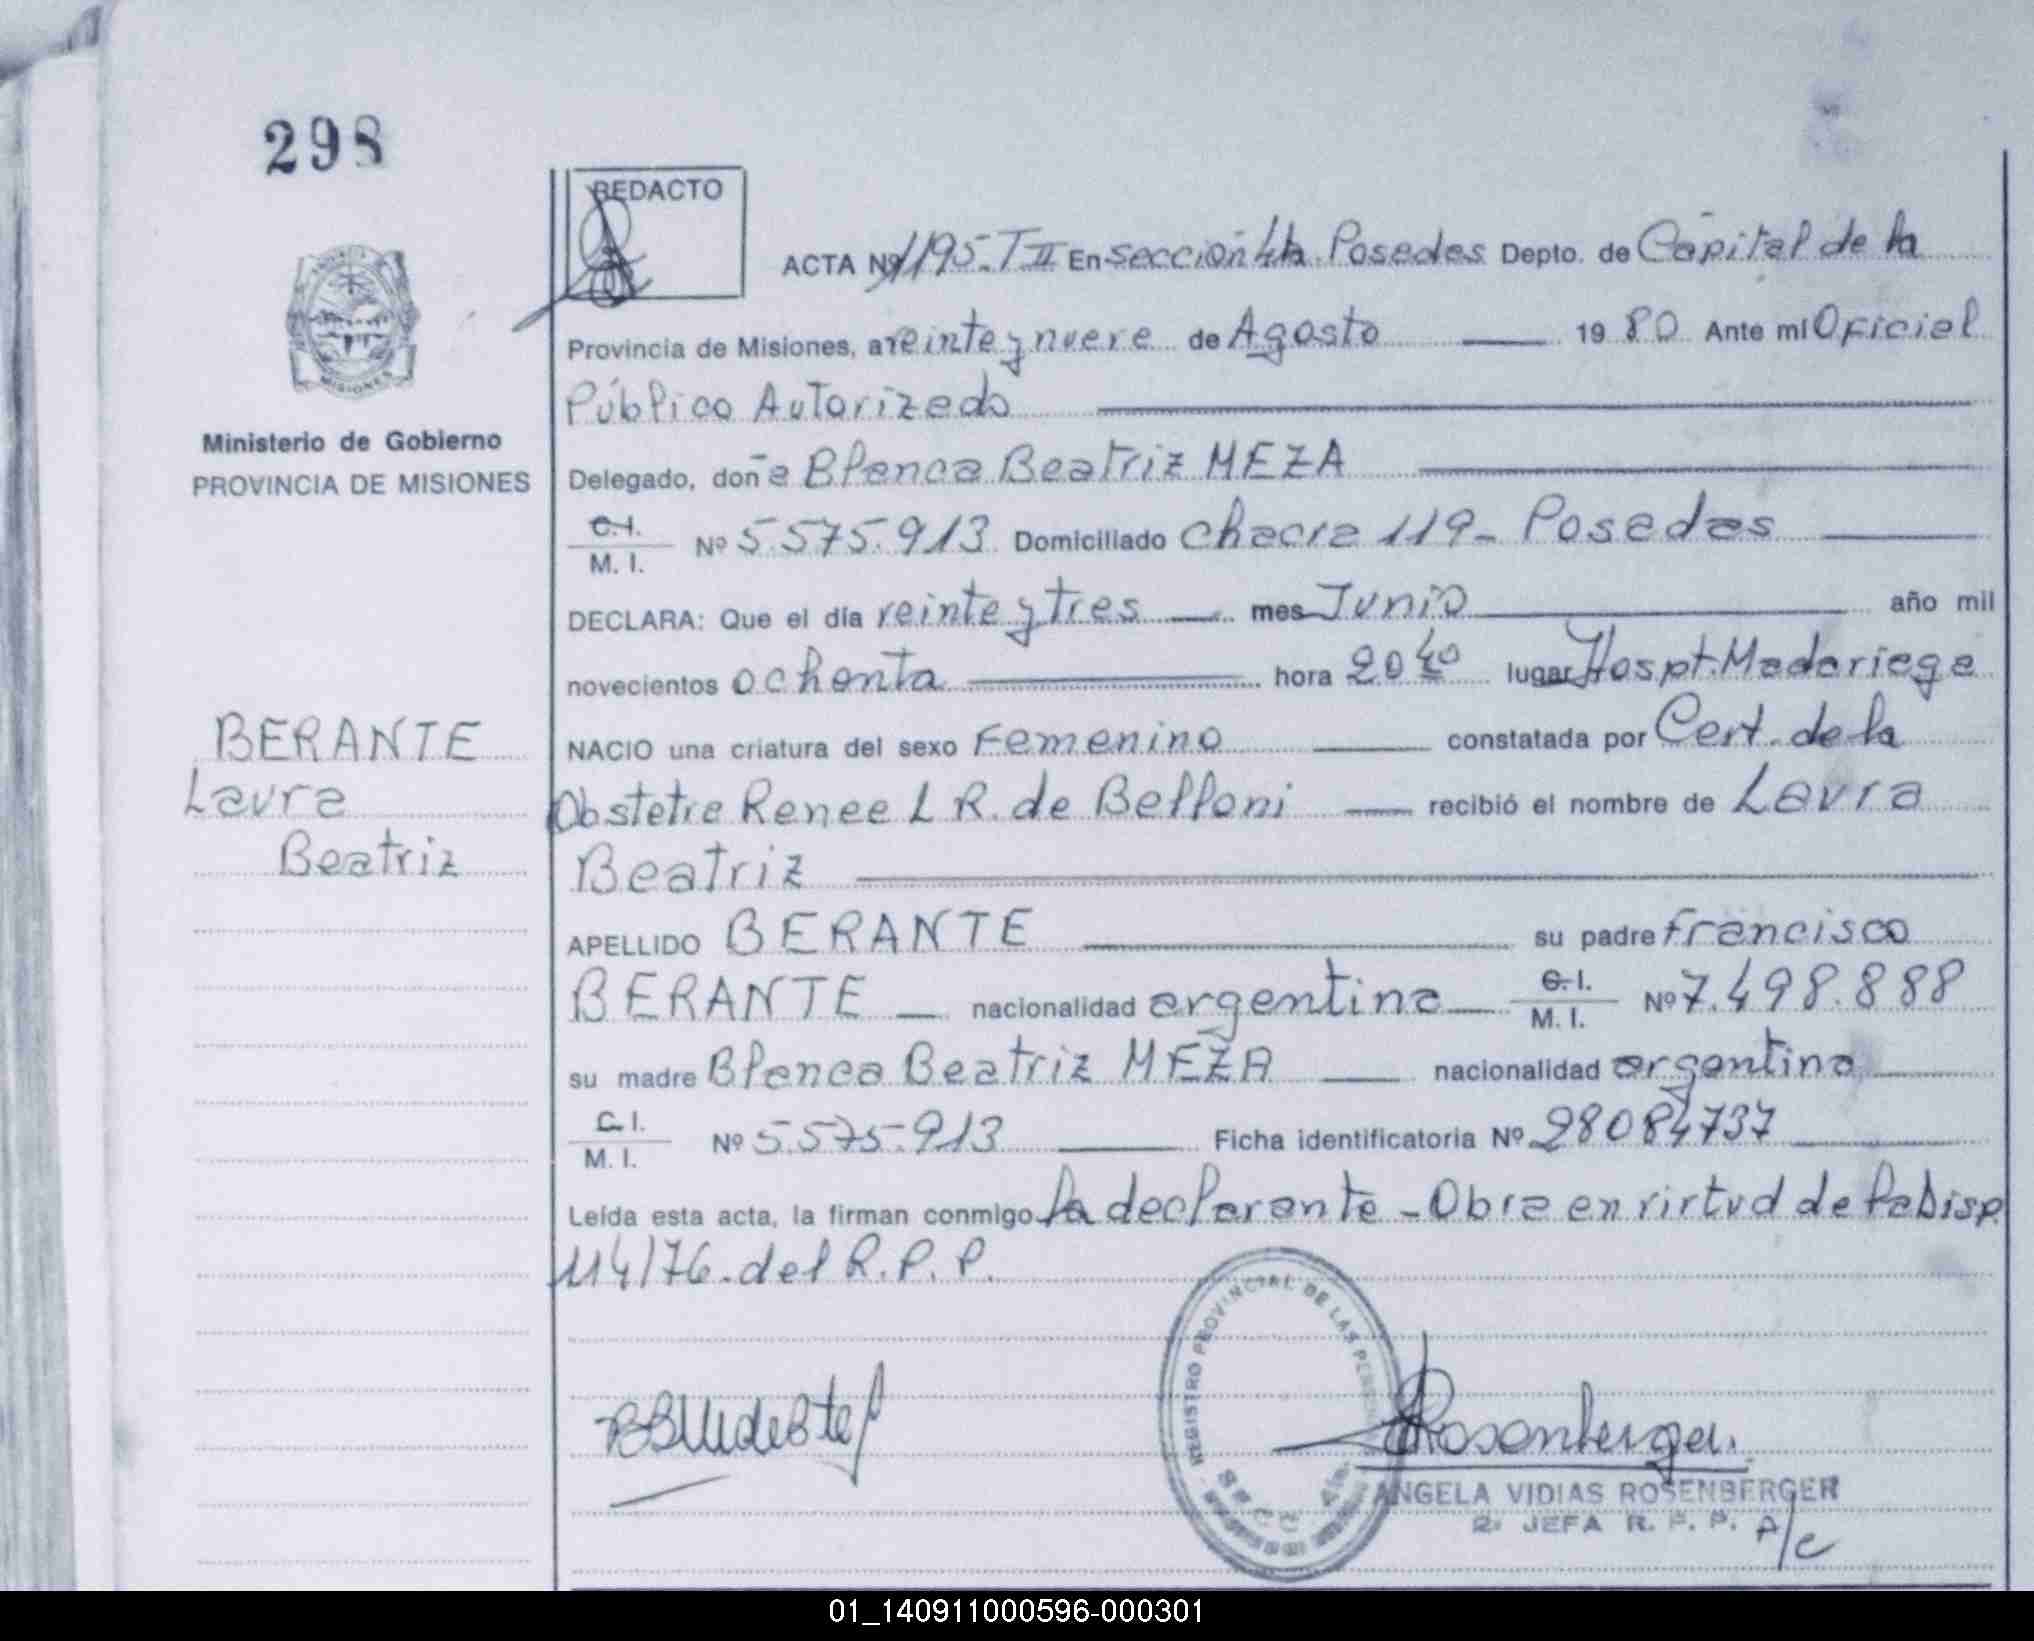 298
REDACTO
ACTA Nº 1195-T II En sección 4ta Posadas Depto. de Capital de la
Provincia de Misiones, a veinte y nueve de Agosto 1980 Ante mí Oficial
Público Autorizado
Ministerio de Gobierno
PROVINCIA DE MISIONES
Delegado, doña Blanca Beatriz MEZA
C.I. M. I. Nº 5.575.913 Domiciliado Chacra 119- Posadas
DECLARA: Que el día veinte y tres mes Junio año mil
novecientos ochenta hora 20 40 lugar Hospt. Madariaga
BERANTE
Laura
Beatriz
NACIO una criatura del sexo Femenino constatada por Cert. de la
Obstetra Renee L R. de Belloni recibió el nombre de Laura
Beatriz
APELLIDO BERANTE su padre Francisco
BERANTE nacionalidad argentina C.I. M. I. Nº 7.498.888
su madre Blanca Beatriz MEZA nacionalidad argentina
C.I. M. I. Nº 5.575.913 Ficha identificatoria Nº 28084737
Leída esta acta, la firman conmigo la declarante - Obra en virtud de la Disp.
114/76. del R. P. P.
REGISTRO PROVINCIAL DE LAS
Rosenberger
ANGELA VIDIAS ROSENBERGER
2ª JEFA R. P. P. A/C
01_140911000596-000301